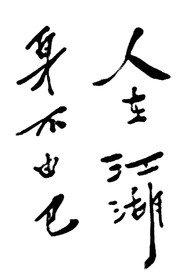 人在江湖
身不由己